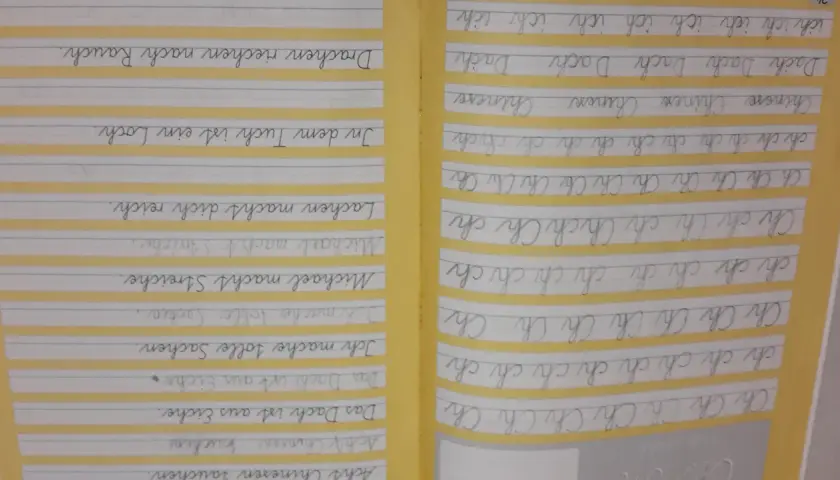 Ch Ch Ch Ch Ch Ch Ch Ch
ch ch ch ch ch ch ch ch ch
Ch Ch Ch Ch Ch Ch Ch
ch ch ch ch ch ch ch ch
Ch ch Ch ch Ch ch Ch ch
Ch Ch Ch Ch Ch Ch Ch Ch Ch
ch ch ch ch ch ch ch ch ch ch
Chinese Chinese Chinese Chinese
Dach Dach Dach Dach Dach
ich ich ich ich ich ich ich ich
Acht Chinesen tauchen.
Acht Chinesen tauchen
Das Dach ist aus Eiche.
Das Dach ist aus Eiche.
Ich mache tolle Sachen.
Ich mache tolle Sachen.
Michael macht Streiche.
Michael macht Streiche.
Lachen macht dich reich.
In dem Tuch ist ein Loch.
Drachen riechen nach Rauch.